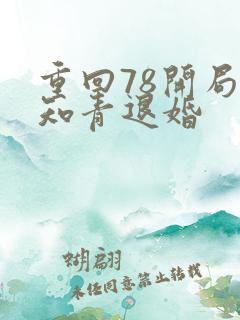 重回78開局
知青退婚
蝴翩
未任同意禁止转载